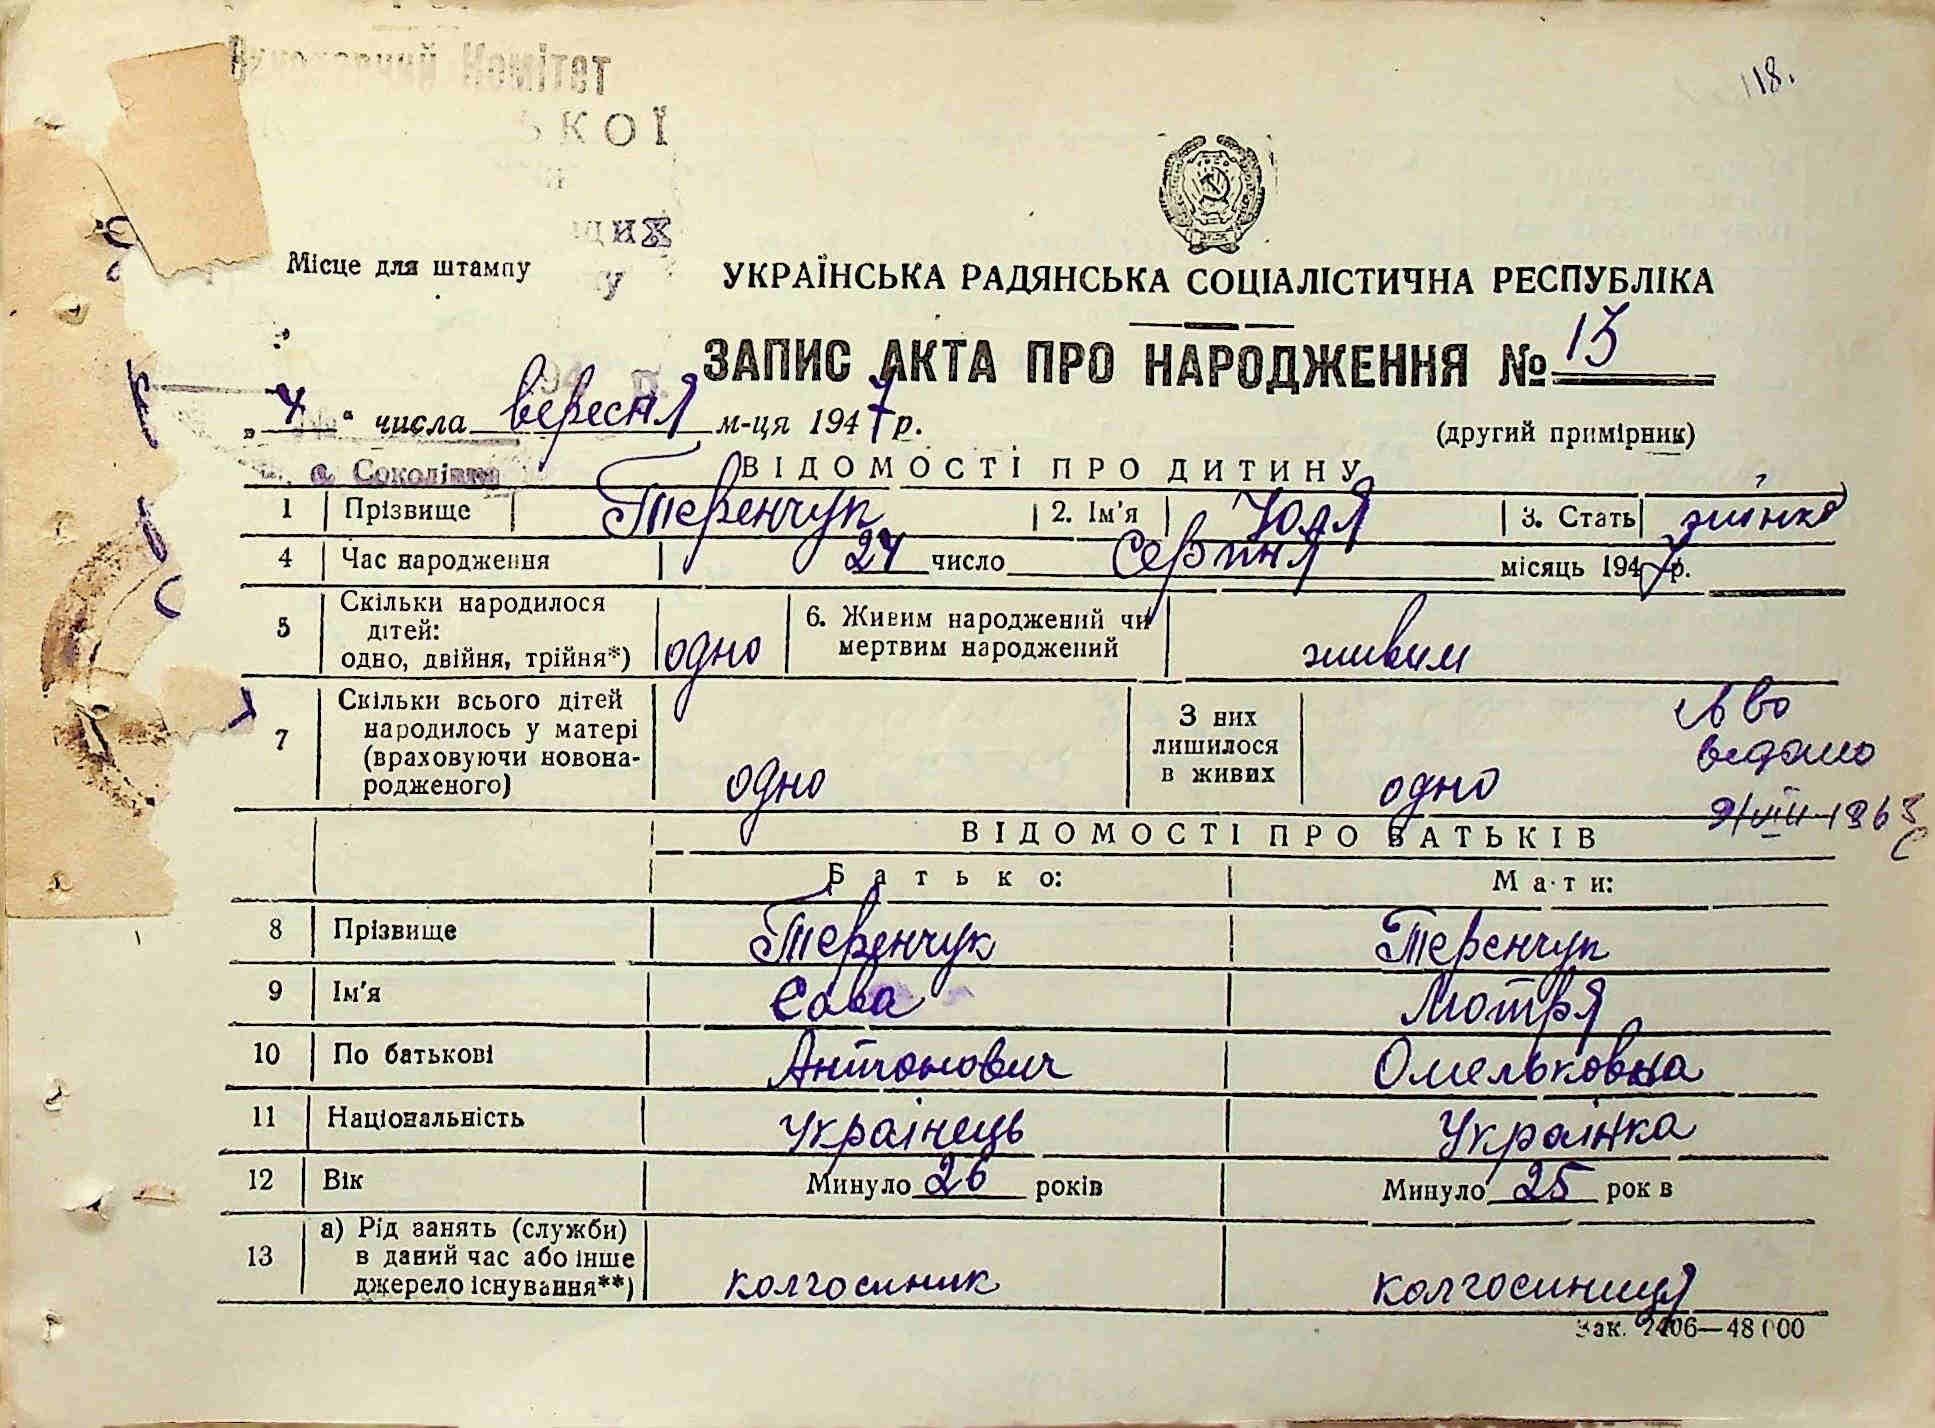 Виконавчий Комітет
ЬКОЇ
щих
118.
Місце для штампу
УКРАЇНСЬКА РАДЯНСЬКА СОЦІАЛІСТИЧНА РЕСПУБЛІКА
ЗАПИС АКТА ПРО НАРОДЖЕННЯ №
„4“ числа вересня м-ця 1947 р.
(другий примірник)
с. Соколівка
ВІДОМОСТІ ПРО ДИТИНУ
1 Прізвище Теренчук 2. Ім'я Юля 3. Стать жінка
4 Час народження 24 число Серпня місяць 1947 р.
5 Скільки народилося дітей: одно, двійня, трійня*) одно 6. Живим народжений чи мертвим народжений живим
7 Скільки всього дітей народилось у матері (враховуючи новонародженого) одно З них лишилося в живих одно
видано
ВІДОМОСТІ ПРО БАТЬКІВ
Батько: Мати:
8 Прізвище Теренчук Теренчук
9 Ім'я Сава Мотря
10 По батькові Антонович Омельковна
11 Національність Українець Українка
12 Вік Минуло 26 років Минуло 25 рок в
13 а) Рід занять (служби) в даний час або інше джерело існування**) колгоспник колгоспниця
Зак. 2406—48 000